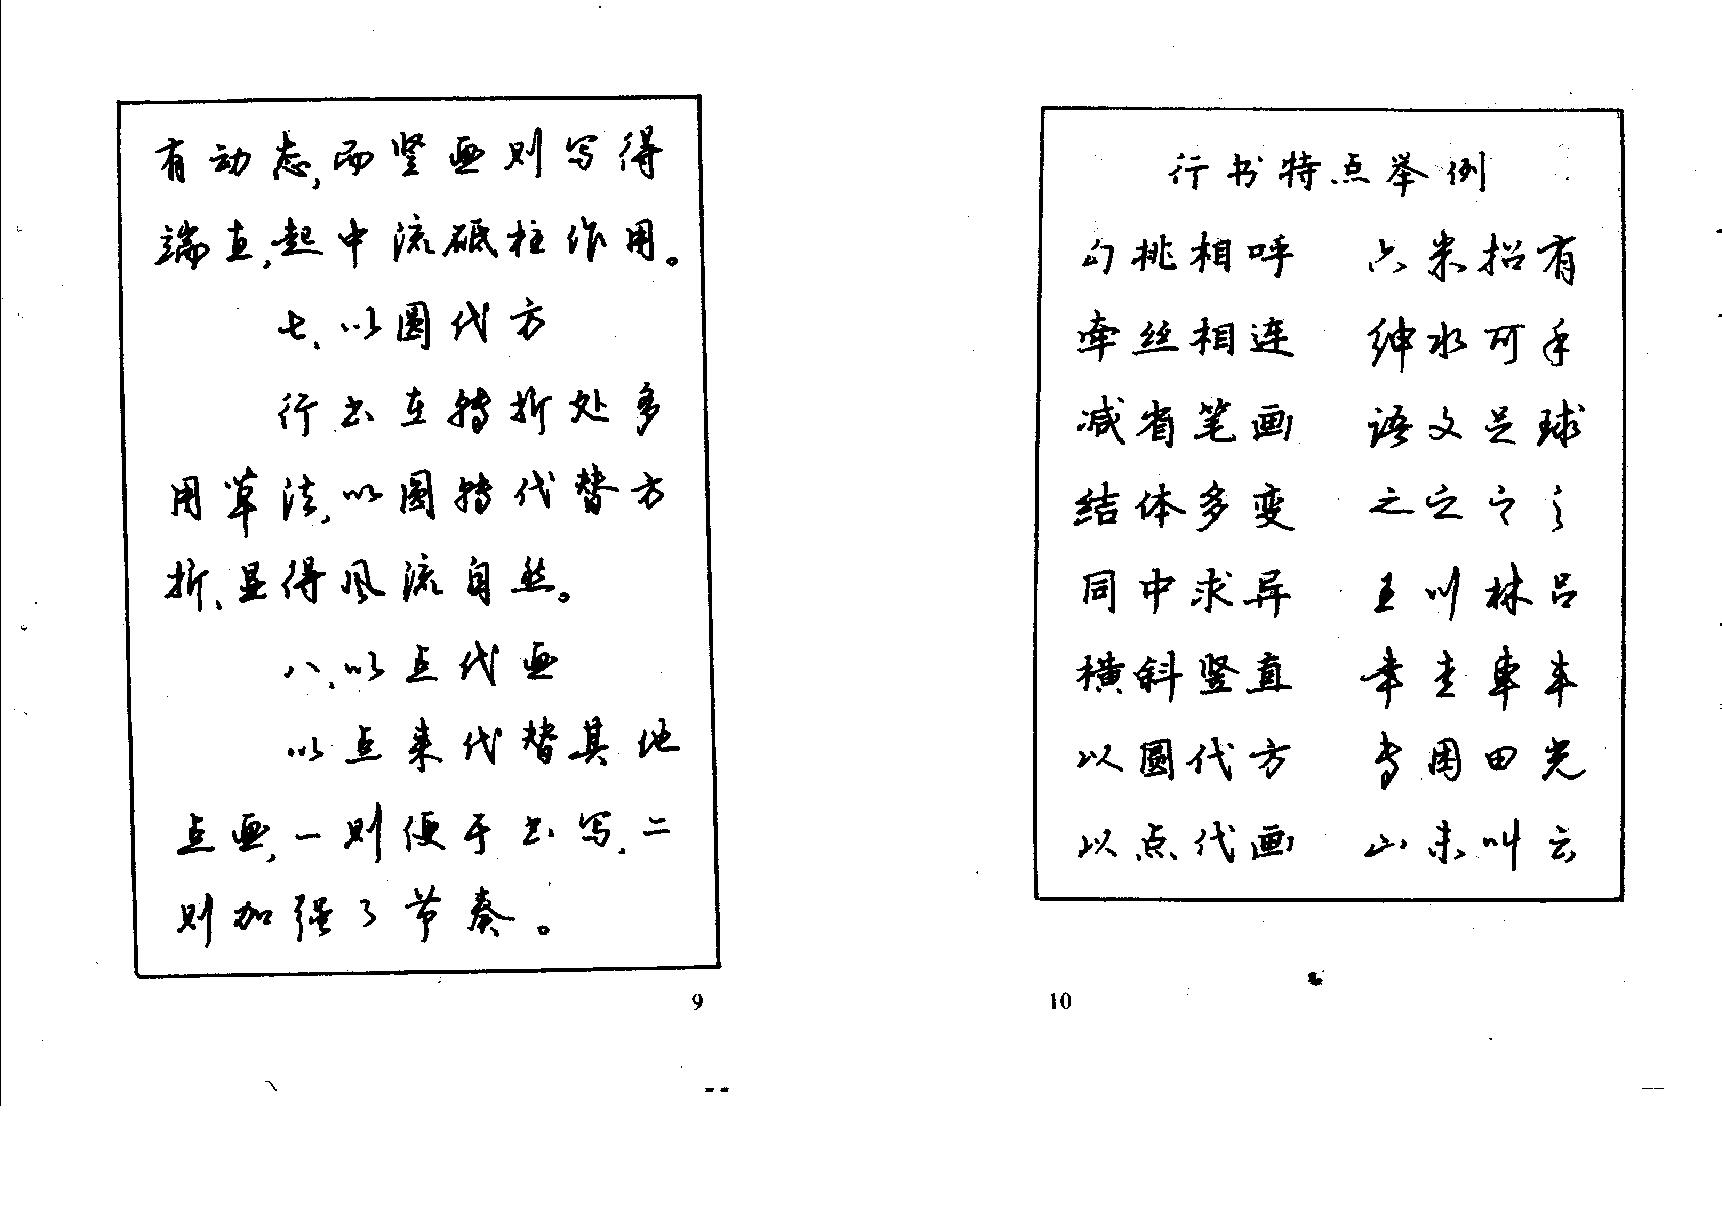 有动态,而竖画则写得
端直,起中流砥柱作用。
七、以圆代方
行书在转折处多
用草法,以圆转代替方
折、显得风流自然。
八、以点代画
以点来代替其他
点画,一则便于书写,二
则加强了节奏。
9
行书特点举例
勾挑相呼 六米招有
牵丝相连 绅水可手
减省笔画 语文足球
结体多变 之之之之
同中求异 王川林吕
横斜竖直 幸圭車车
以圆代方 用田光
以点代画 山未叫云
10